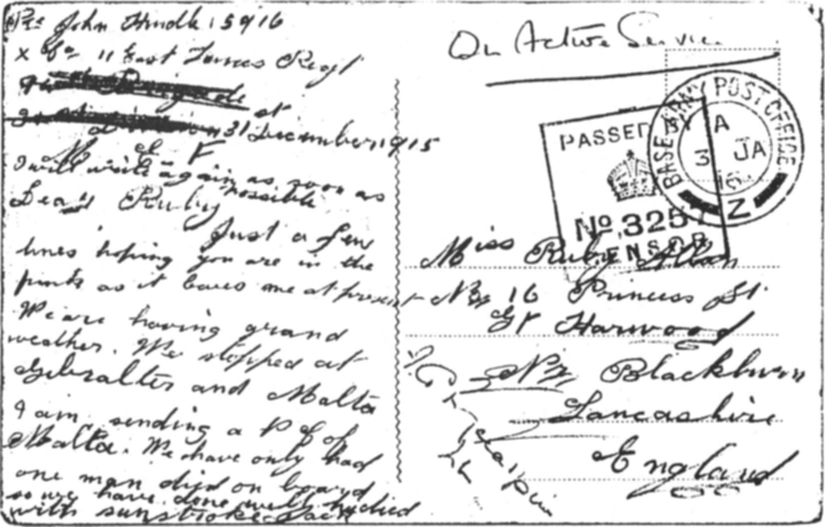 Pte John Hindle 15916
x Co 11 East Lancs Regt
31st December 1915
M E F
I will write again as soon as
possible
Dear Ruby
Just a few
lines hoping you are in the
pink as it leaves me at present
We are having grand
weather. We stopped at
Gibralter and Malta
I am sending a P C of
Malta. We have only had
one man died on board
so we have done well, he died
with sunstroke Jack
On Active Service
BASE ARMY POST OFFICE
A
3 JA
16
Z
PASSED BY
No. 3257
CENSOR
Miss Ruby Allan
No 16 Princess St.
Gt Harwood
Nr Blackburn
Lancashire
England